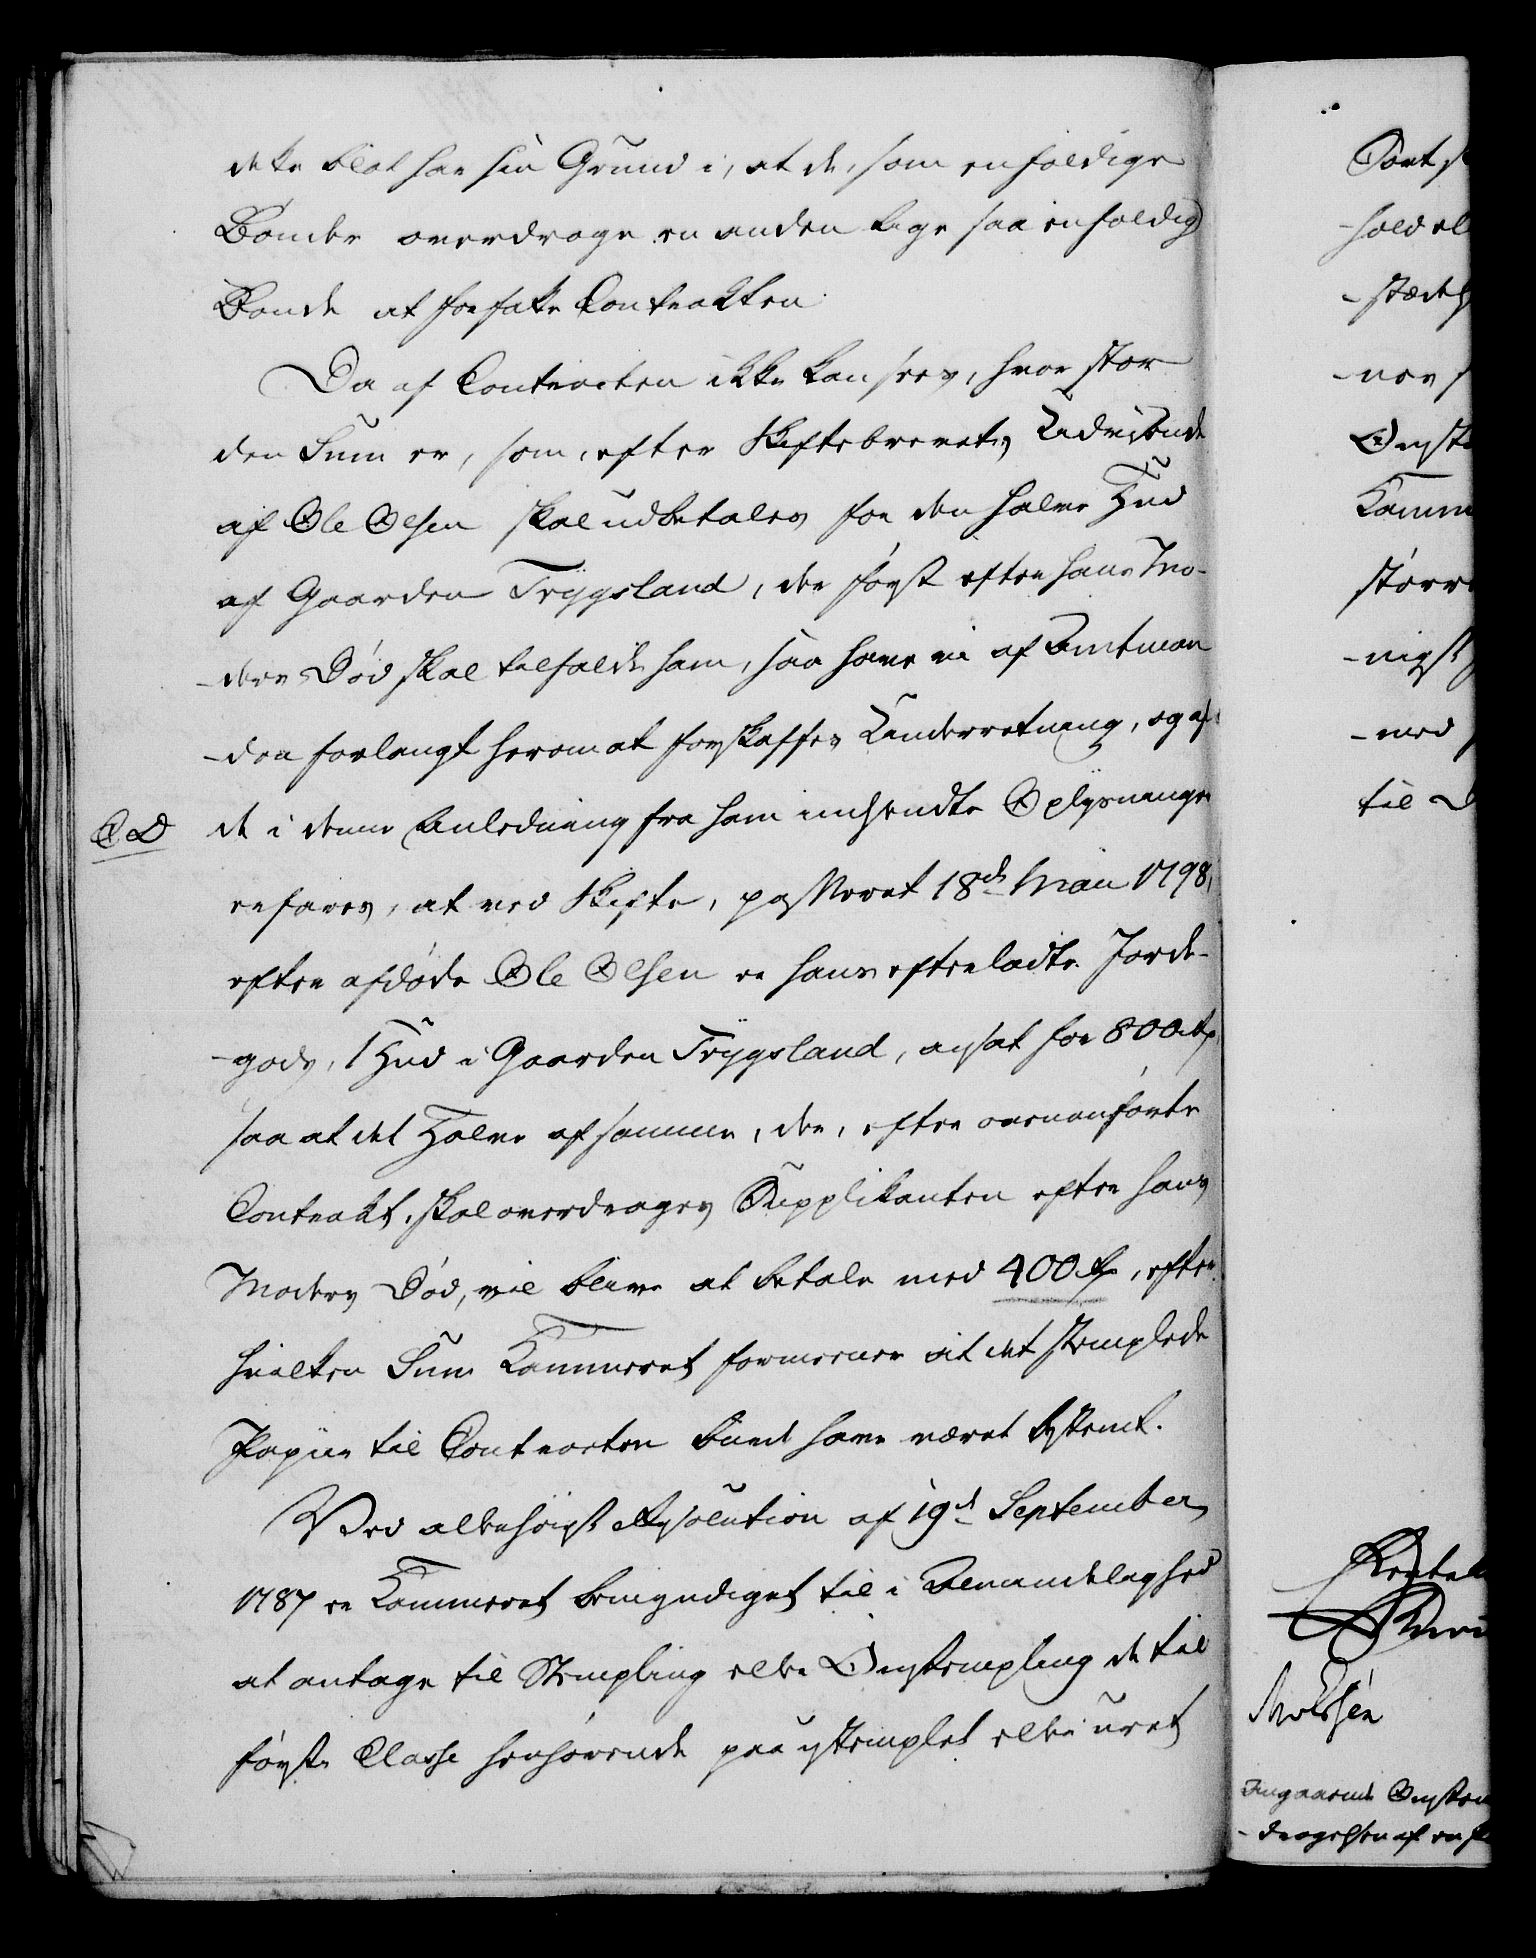 dette blot har sin Grund i, at de, som enfoldige
Bønder overdroge en anden lige saa enfoldig
Bonde at forfatte Contrakten.
Da af Contracten ikke kan sees, hvor stor
den Sum er, som, efter Skiftebrevets Udvisende
af Ole Olsen skal udbetales for den halve Hud
af Gaarden Trygsland, der først efter hans Mo-
-ders Død skal tilfalde ham, saa have vi af Amtman
-den forlangt herom at forskaffes Underretning, og af
C D
de i denne Anledning fra ham indsendte Oplysninger
erfares, at ved Skifte, passeret 18de Maii 1798,
efter afdøde Ole Olsen er hans efterladte Jorde-
-gods, 1 Hud i Gaarden Trygsland, ansat for 800 Rd
saa at det Halve af samme, der, efter ovenanførte
Contrakt, skal overdrages Supplikanten efter hans
Moders Død, vil blive at betale med 400 Rd, efter
hvilken Sum Kammeret formeener at det stemplede
Papiir til Contracten burde have været bestemt.
Ved allerhøiest Resolution af 19de September
1787 er Kammeret bemyndiget til i Almindelighed
at antage til Stempling eller Omstempling de til
første Classe henhørende paa ustemplet eller uret
til
Kamm
større
-nigst
-med